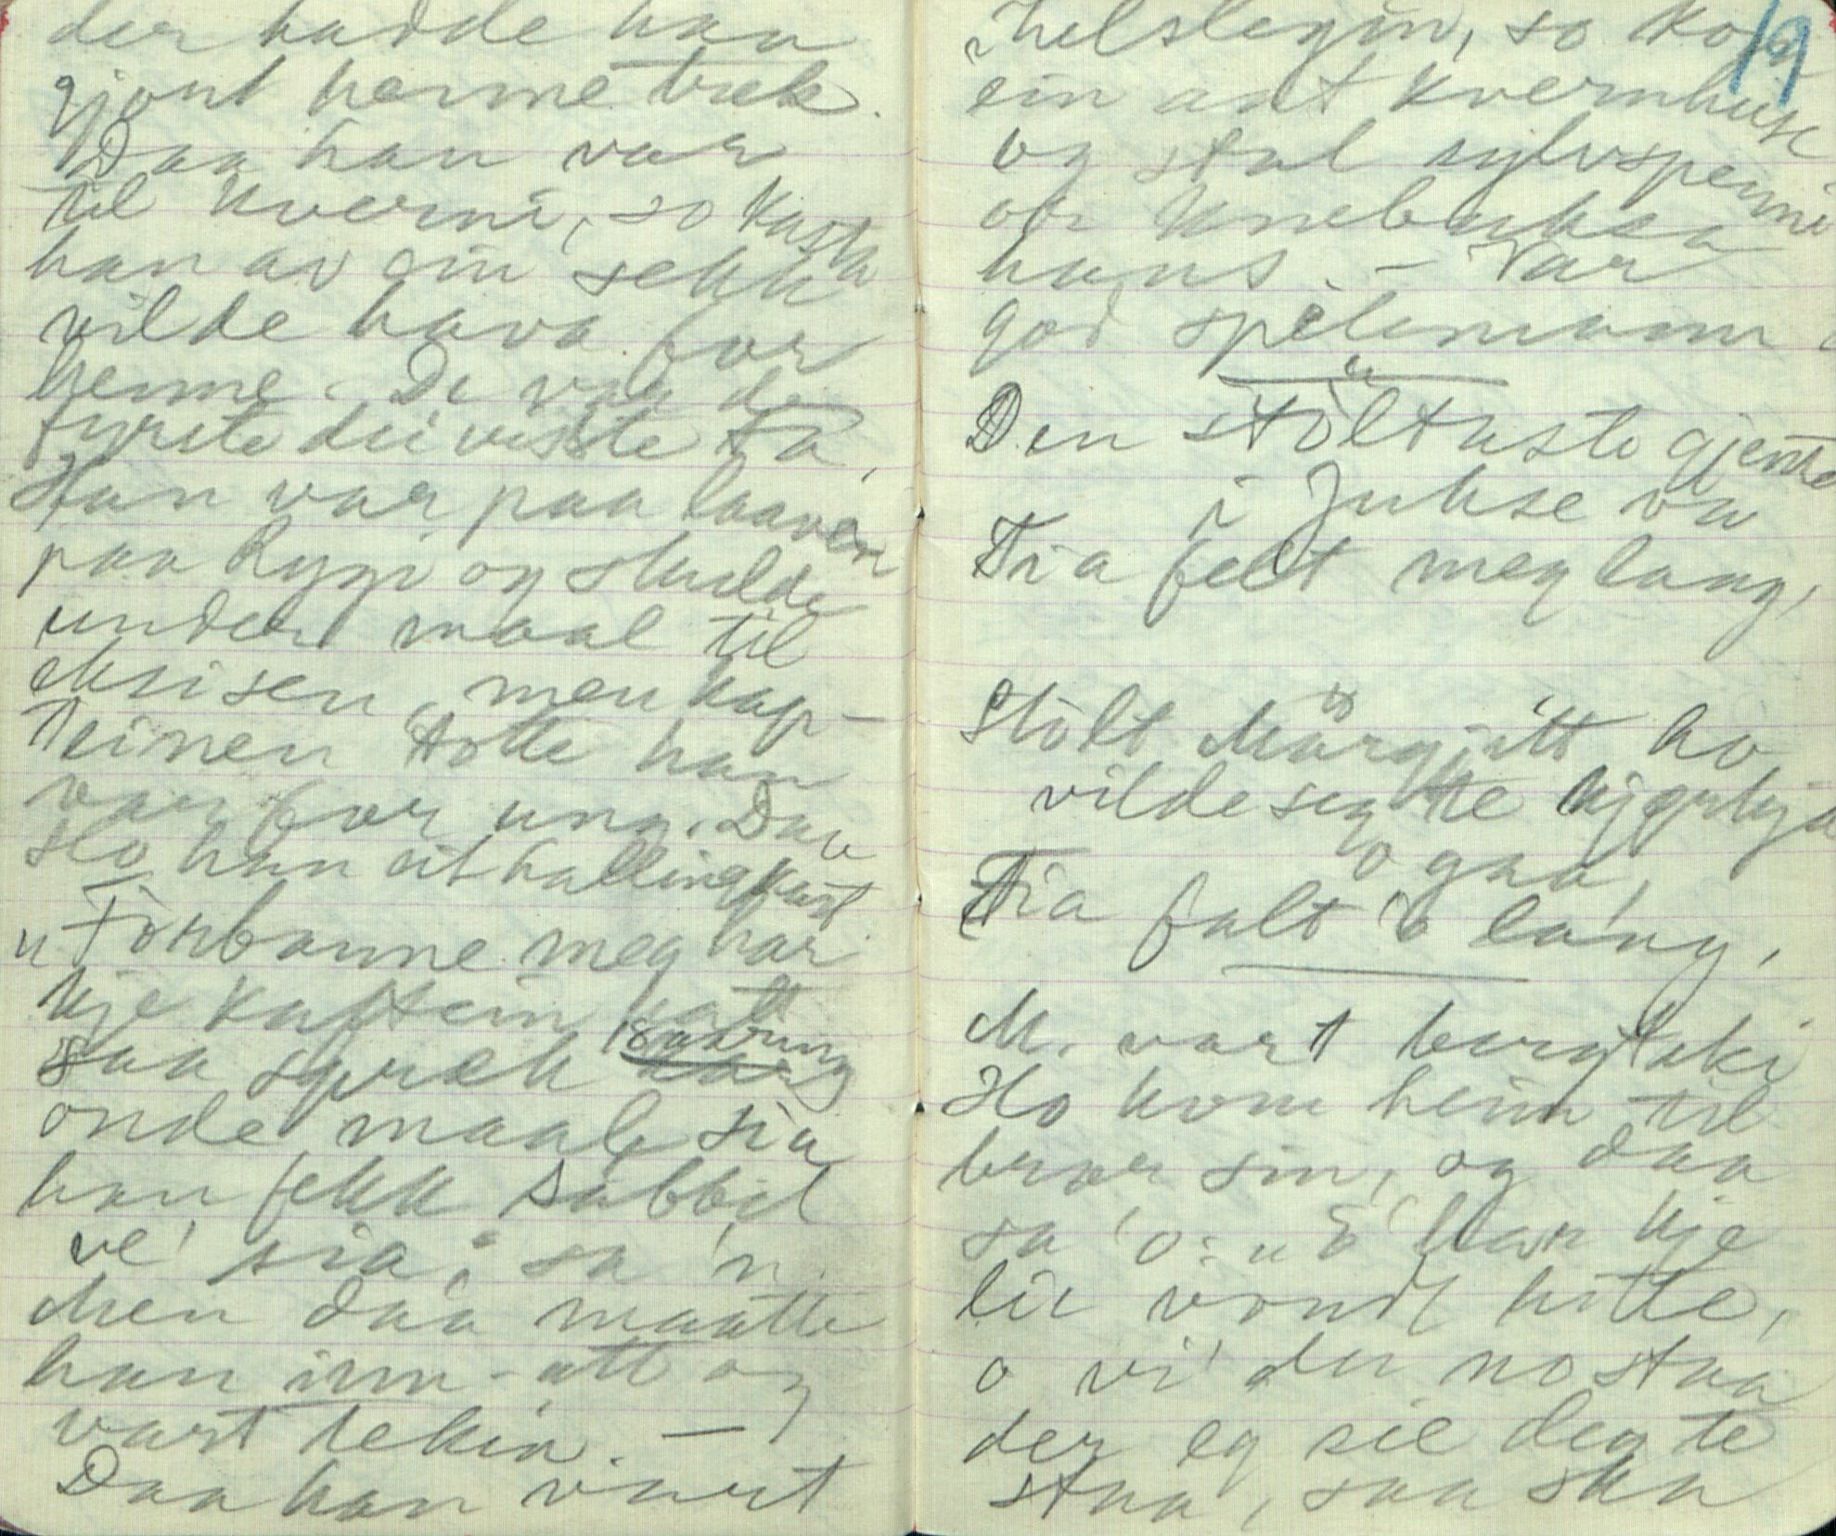 der hadde han
gjort henne trek.
Daa han var
til kverni, so kasta
han av ein sekk
vilde hava for
henne. De var de
fyrste dei visste ta,
Han var paa laaven
paa Rygi og skulde
under maal til
men kap-
teinen totte han
var for ung. Daa
slo han eit hallingkast
"Forbanne meg har
kje kaftein hatt
saa sprek 18 aaring
onde maale sia
han fekk sabbel
ve' sia", sa 'n.
Men daa maatte
han inn-att og
vart tekin. —
Daa han vart
ihelslegin, so kom
19
ein att kvernhuse
og stal sylvspenni
or knebuksa
hans. — Var
god spelemann
Den stoltaste gjenta
i Juhse va
Tia felt meg lang,
Stolt Margjitt ho
vilde seg te kjyrkja
o gaa,
Tia falt 'o lang,
M. vart bergteki
Ho kom heim til
bror sin, og daa
sa 'o: "
lie vondt hitte,
o vi' du no staa
der eg sie deg te
staa, saa ska